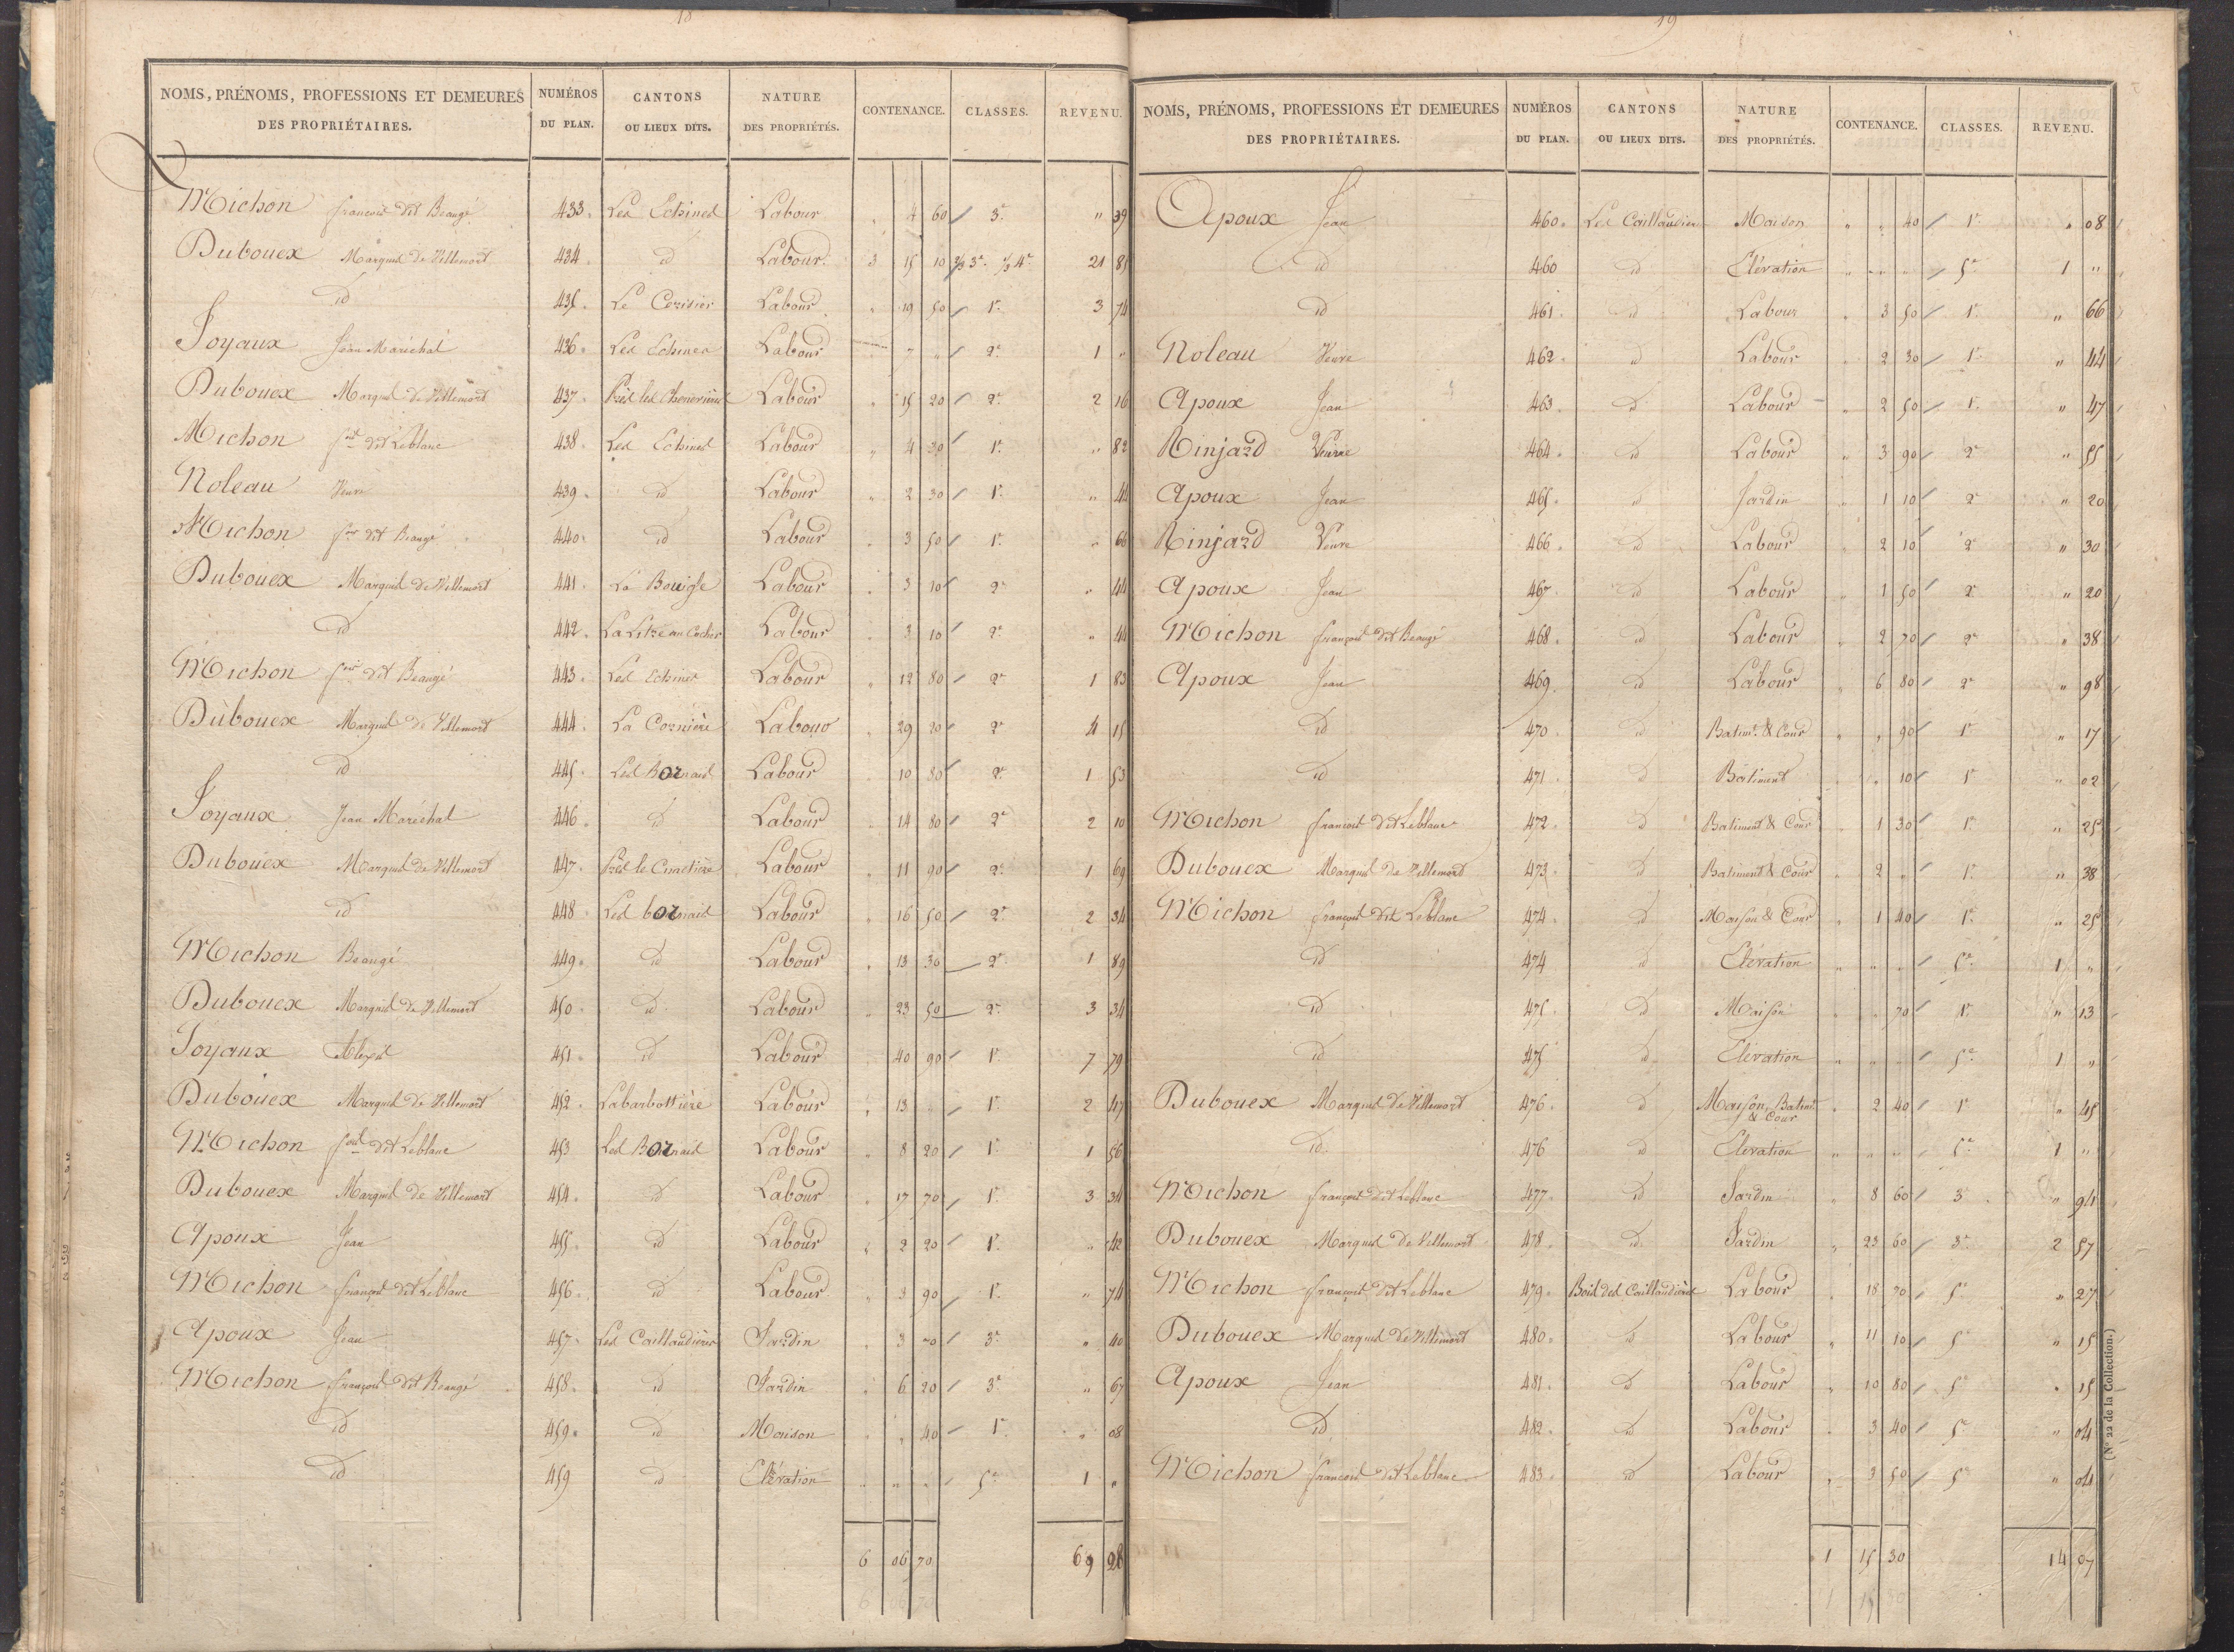 18
NOMS, PRÉNOMS, PROFESSIONS ET DEMEURES DES PROPRIÉTAIRES. NUMÉROS DU PLAN. CANTONS OU LIEUX DITS. NATURE DES PROPRIÉTÉS. CONTENANCE. CLASSES. REVENU.
Michon françois dit Beaugé 433. Les Echines Labour " 4 60 3e " 39
Dubouex Marquis de Villemort 434. id Labour 3 15 10 2/3 3e 1/3 4e 21 81
id 435. Le Cerisier Labour " 19 50 1e 3 74
Joyaux Jean Maréchal 436. Les Echines Labour 7 " 2e 1 "
Dubouex Marquis de Villemort 437. Près les Labour " 15 20 2e 2 16
Michon fois dit Leblanc 438. Les Echines Labour " 4 30 1e " 82
Noleau Veuve 439. id Labour " 2 30 1e " 44
Michon fois dit Beaugé 440. id Labour " 3 50 1e " 66
Dubouex Marquis de Villemort 441. La Bouige Labour " 3 10 2e " 44
id 442. La Labour " 3 10 2e " 44
Michon fois dit Beaugé 443. Les Echines Labour " 12 80 2e 1 83
Dubouex Marquis de Villemort 444. La Cornière Labour " 29 20 2e 4 15
id 445. Les Bornais Labour " 10 80 2e 1 53
Joyaux Jean Maréchal 446. id Labour " 14 80 2e 2 10
Dubouex Marquis de Villemort 447. Près le Cimetière Labour " 11 90 2e 1 69
id 448. Les bornais Labour " 16 50 2e 2 34
Michon Beaugé 449. id Labour " 13 30 2e 1 89
Dubouex Marquis de Villemort 450. id Labour " 23 50 2e 3 34
Joyaux Alexis 451. id Labour " 40 90 1e 7 79
Dubouex Marquis de Villemort 452. Labarbottière Labour " 13 " 1e 2 47
Michon fois dit Leblanc 453 Les Bornais Labour " 8 20 1e 1 56
Dubouex Marquis de Villemort 454. id Labour " 17 70 1e 3 34
Apoux Jean 455. id Labour " 2 20 1e " 42
Michon françois dit Leblanc 456. id Labour " 3 90 1e " 74
Apoux Jean 457. Les Caillaudières Jardin " 3 70 3e " 40
Michon françois dit Beaugé 458. id Jardin " 6 20 3e " 67
id 459. id Maison " " 40 1e " 08
id 459 id Elévation " " " 5e 1 "
6 06 70 69 28
19
NOMS, PRÉNOMS, PROFESSIONS ET DEMEURES DES PROPRIÉTAIRES. NUMÉROS DU PLAN. CANTONS OU LIEUX DITS. NATURE DES PROPRIÉTÉS. CONTENANCE. CLASSES. REVENU.
Apoux Jean 460. Les Caillaudières Maison " " 40 1e " 08
id 460 id Elévation " " " 5e 1 "
id 461. id Labour " 3 50 1e " 66
Noleau Veuve 462. id Labour " 2 30 1e " 44
Apoux Jean 463. id Labour " 2 50 1e " 47
Ninjard Veuve 464. id Labour " 3 90 2e " 55
Apoux Jean 465. id Jardin " 1 10 2e " 20
Ninjard Veuve 466. id Labour " 2 10 2e " 30
Apoux Jean 467. id Labour " 1 50 2e " 20
Michon françois dit Beaugé 468. id Labour " 2 70 2e " 38
Apoux Jean 469. id Labour " 6 80 2e " 98
id 470. id Batimt. & Cour " " 90 1e " 17
id 471. id Bâtiment " " 10 1e " 02
Michon françois dit Leblanc 472. id Batiment & Cour " 1 30 1e " 25
Dubouex Marquis de Villemort 473. id Batiment & Cour " 2 " 1e " 38
Michon françois dit Leblanc 474. id Maison & Cour " 1 40 1e " 25
id 474 id Elévation " " " 5e 1 "
id 475. id Maison " " 70 1e " 13
id 475 id Elévation " " " 5e 1 "
Dubouex Marquis de Villemort 476. id Maison, Batimt & Cour " 2 40 1e " 45
id 476 id Elévation " " " 5e 1 "
Michon françois dit Leblanc 477. id Jardin " 8 60 3e " 94
Dubouex Marquis de Villemort 478. id Jardin " 23 60 3e 2 57
Michon françois dit Leblanc 479. Bois des Caillaudières Labour " 18 70 5e " 27
Dubouex Marquis de Villemort 480. id Labour " 11 10 5e " 15
Apoux Jean 481. id Labour " 10 80 5e " 15
id 482. id Labour " 3 40 5e " 04
Michon françois dit Leblanc 483. id Labour " 3 50 5e " 04
1 15 30 14 07
(No 22 de la Collection.)